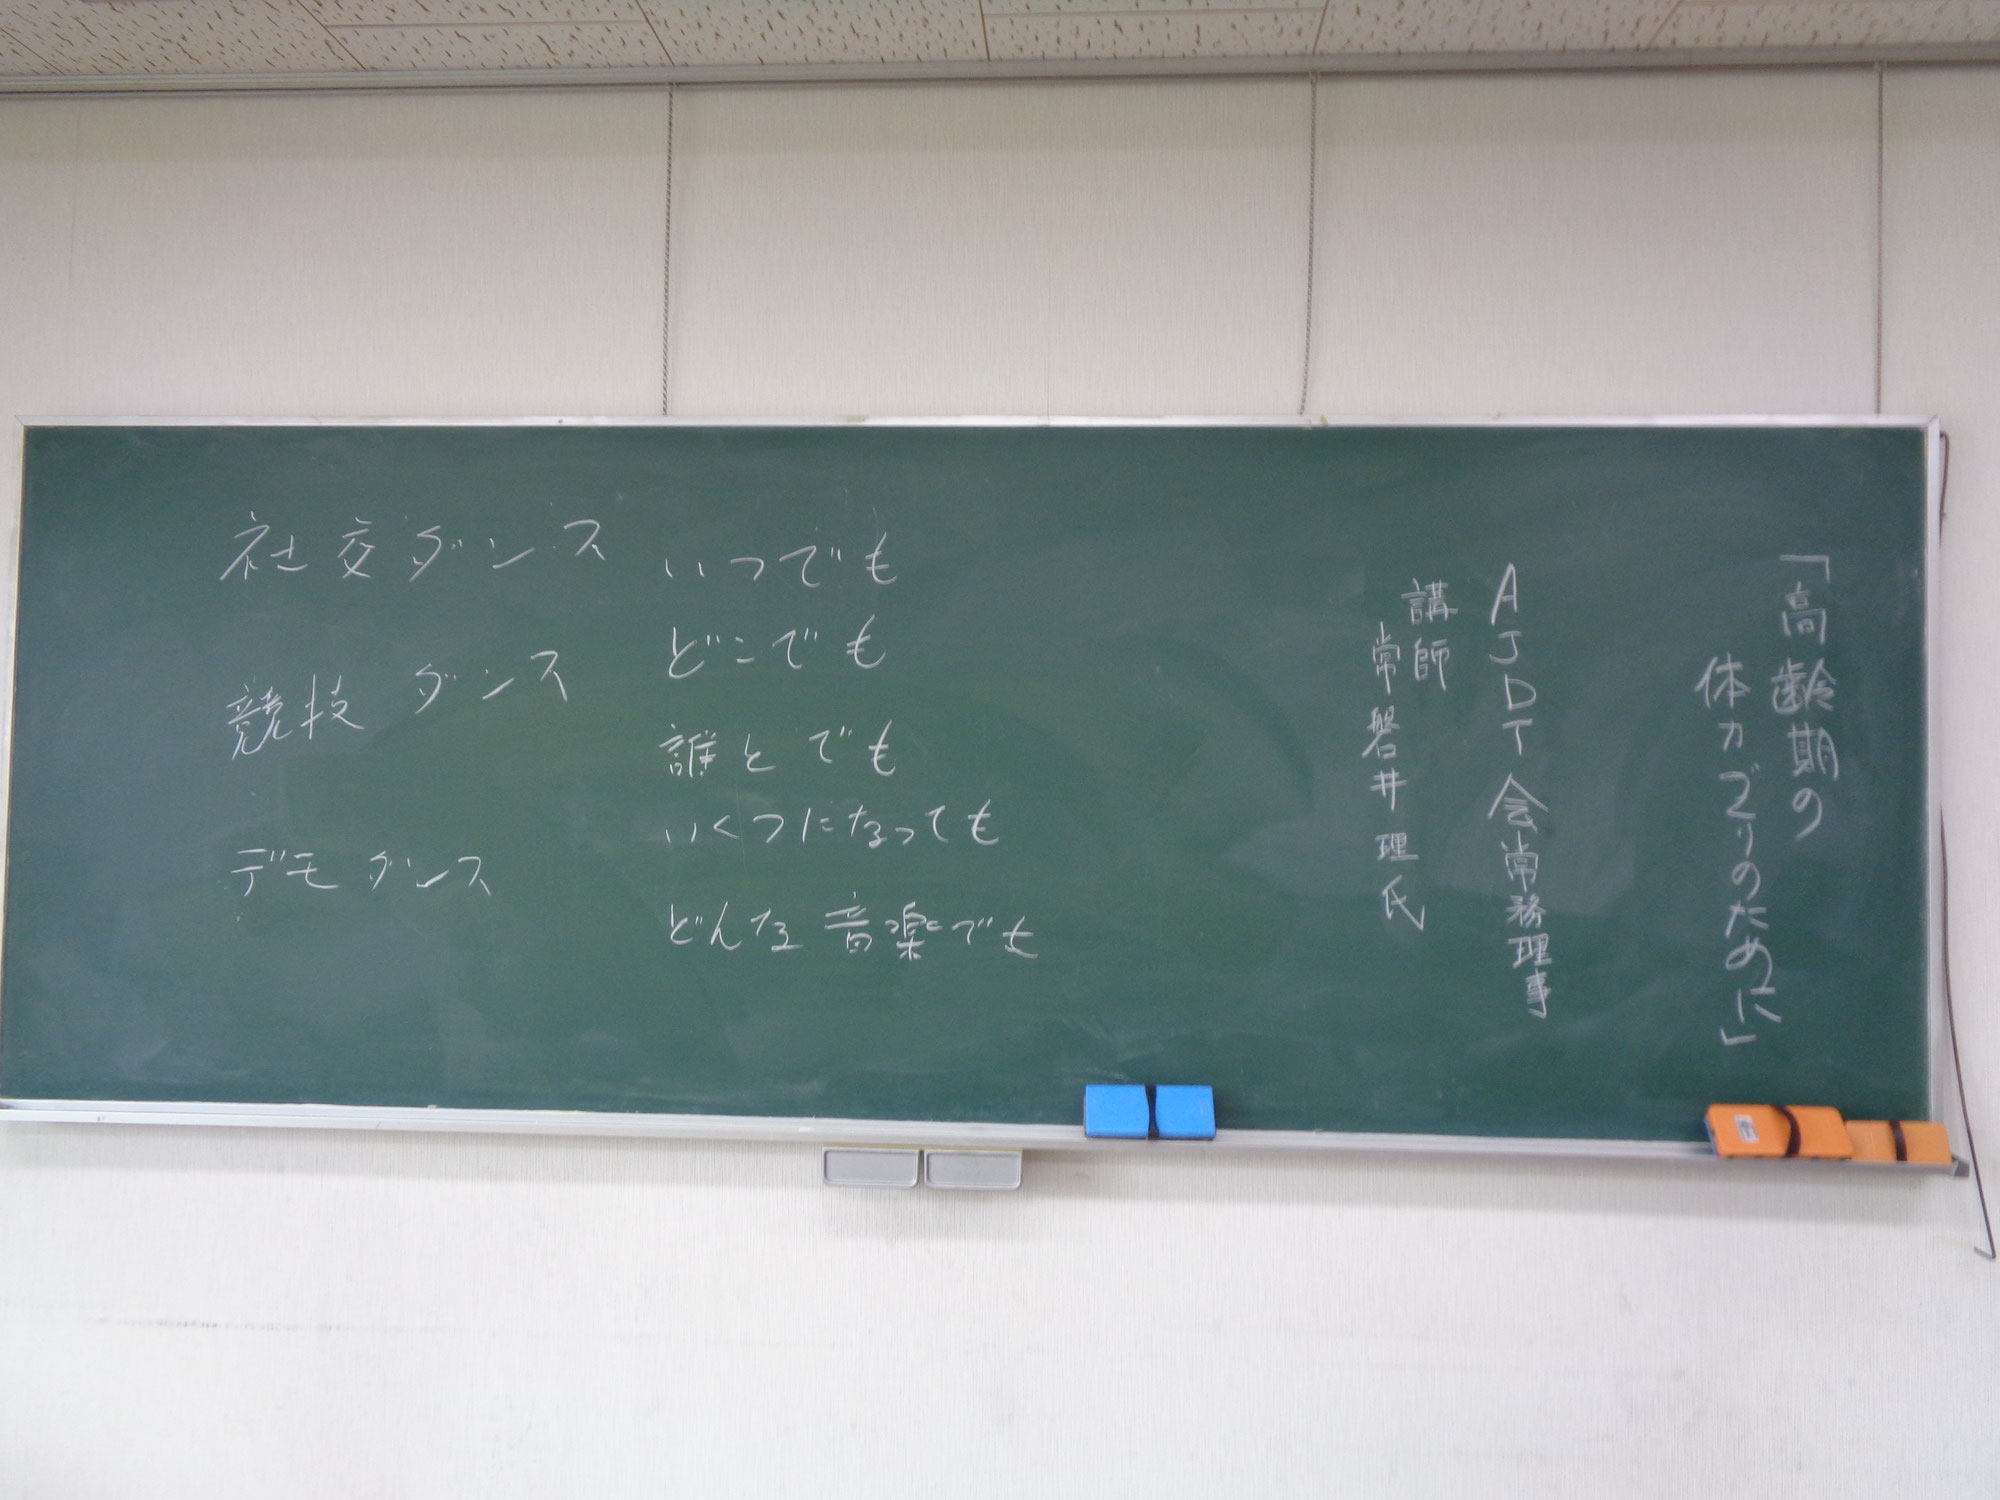 「高齢期の
体力づくりのために」
AJDT会常務理事
講師
常磐井理氏
社交ダンス
競技ダンス
デモダンス
いつでも
どこでも
誰とでも
いくつになっても
どんな音楽でも